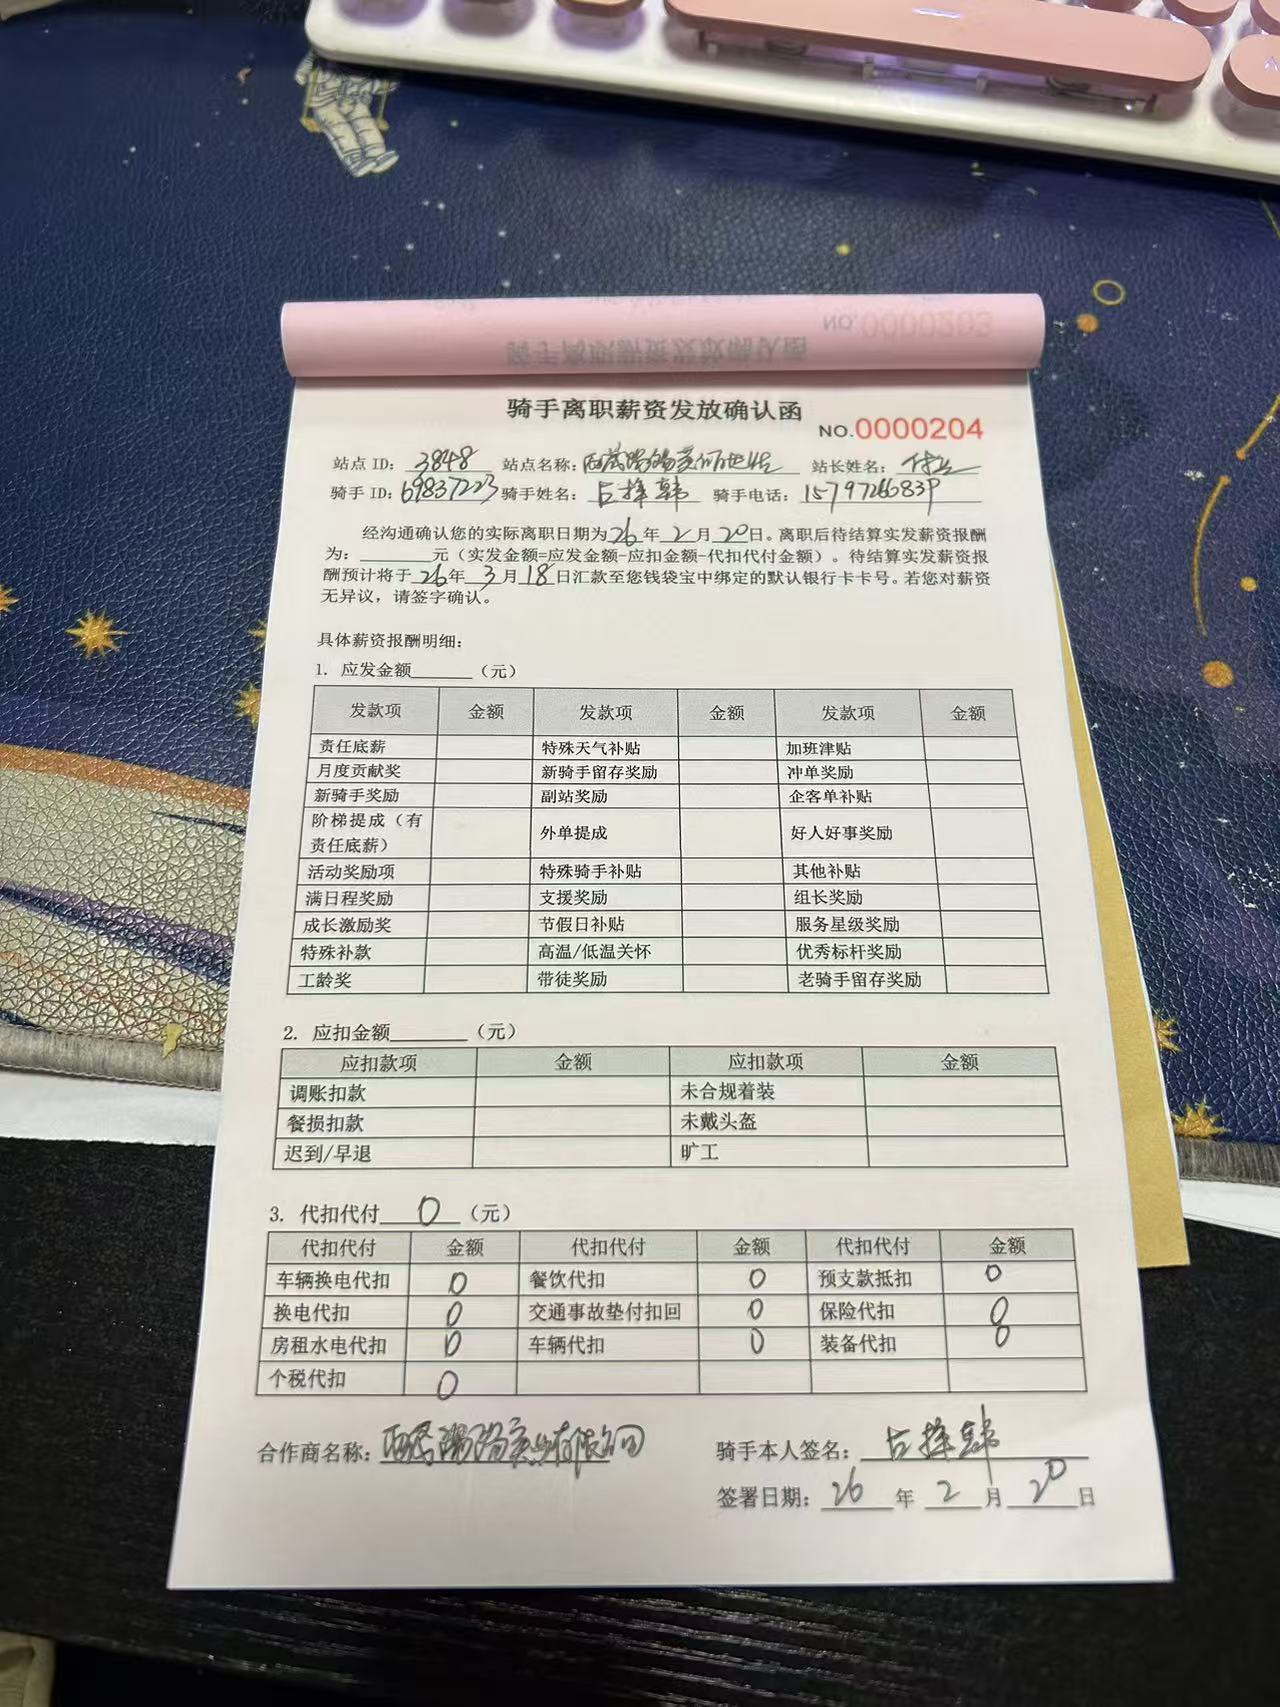 骑手离职薪资发放确认函
NO.0000204
站点 ID: 3848 站点名称: 站长姓名:
骑手 ID: 69837223 骑手姓名: 占择韩 骑手电话:
经沟通确认您的实际离职日期为 26 年 2 月 20 日。离职后待结算实发薪资报酬
为: ______ 元（实发金额=应发金额-应扣金额-代扣代付金额）。待结算实发薪资报
酬预计将于 26 年 3 月 18 日汇款至您钱袋宝中绑定的默认银行卡卡号。若您对薪资
无异议，请签字确认。
具体薪资报酬明细:
1. 应发金额______（元）
发款项 金额 发款项 金额 发款项 金额
责任底薪 特殊天气补贴 加班津贴
月度贡献奖 新骑手留存奖励 冲单奖励
新骑手奖励 副站奖励 企客单补贴
阶梯提成（有
责任底薪） 外单提成 好人好事奖励
活动奖励项 特殊骑手补贴 其他补贴
满日程奖励 支援奖励 组长奖励
成长激励奖 节假日补贴 服务星级奖励
特殊补款 高温/低温关怀 优秀标杆奖励
工龄奖 带徒奖励 老骑手留存奖励
2. 应扣金额______（元）
应扣款项 金额 应扣款项 金额
调账扣款 未合规着装
餐损扣款 未戴头盔
迟到/早退 旷工
3. 代扣代付 0 （元）
代扣代付 金额 代扣代付 金额 代扣代付 金额
车辆换电代扣 0 餐饮代扣 0 预支款抵扣 0
换电代扣 0 交通事故垫付扣回 0 保险代扣 0
房租水电代扣 0 车辆代扣 0 装备代扣 0
个税代扣 0
合作商名称: 骑手本人签名: 占择韩
签署日期: 26 年 2 月 20 日